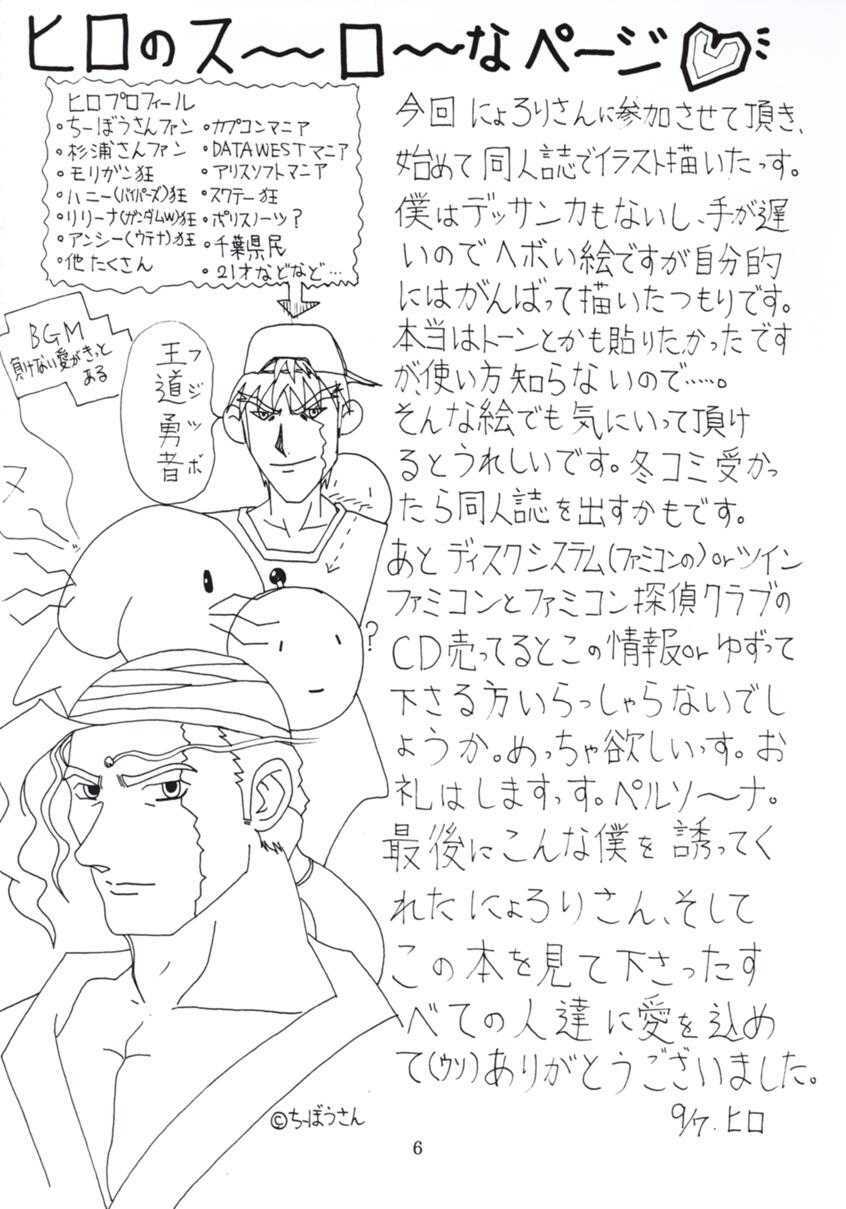 ヒロのス～～ロ～～なページ
ヒロプロフィール
・ちーぼうさんファン
・杉浦さんファン
・モリガン狂
・ハニー(バイパーズ)狂
・リリーナ(ガンダムW)狂
・アンシー(ウテナ)狂
・他たくさん
・カプコンマニア
・DATAWESTマニア
・アリスソフトマニア
・スクテー狂
・ポリスノーツ?
・千葉県民
・21才などなど…
BGM
負けない愛がきっと
ある
王道勇者
フジツボ
ヌ
?
今回にょろりさんに参加させて頂き、
始めて同人誌でイラスト描いたっす。
僕はデッサンカもないし、手が遅
いのでヘボい絵ですが自分的
にはがんばって描いたつもりです。
本当はトーンとかも貼りたかったです
が、使い方知らないので……。
そんな絵でも気にいって頂け
るとうれしいです。冬コミ受かっ
たら同人誌を出すかもです。
あとディスクシステム(ファミコンの)orツイン
ファミコンとファミコン探偵クラブの
CD売ってるとこの情報orゆずって
下さる方いらっしゃらないでし
ょうか。めっちゃ欲しいっす。お
礼はしますっす。ペルソ～ナ。
最後にこんな僕を誘ってく
れたにょろりさん、そして
この本を見て下さったす
べての人達に愛を込め
て(ウソ)ありがとうございました。
9/7.ヒロ
©ちーぼうさん
6